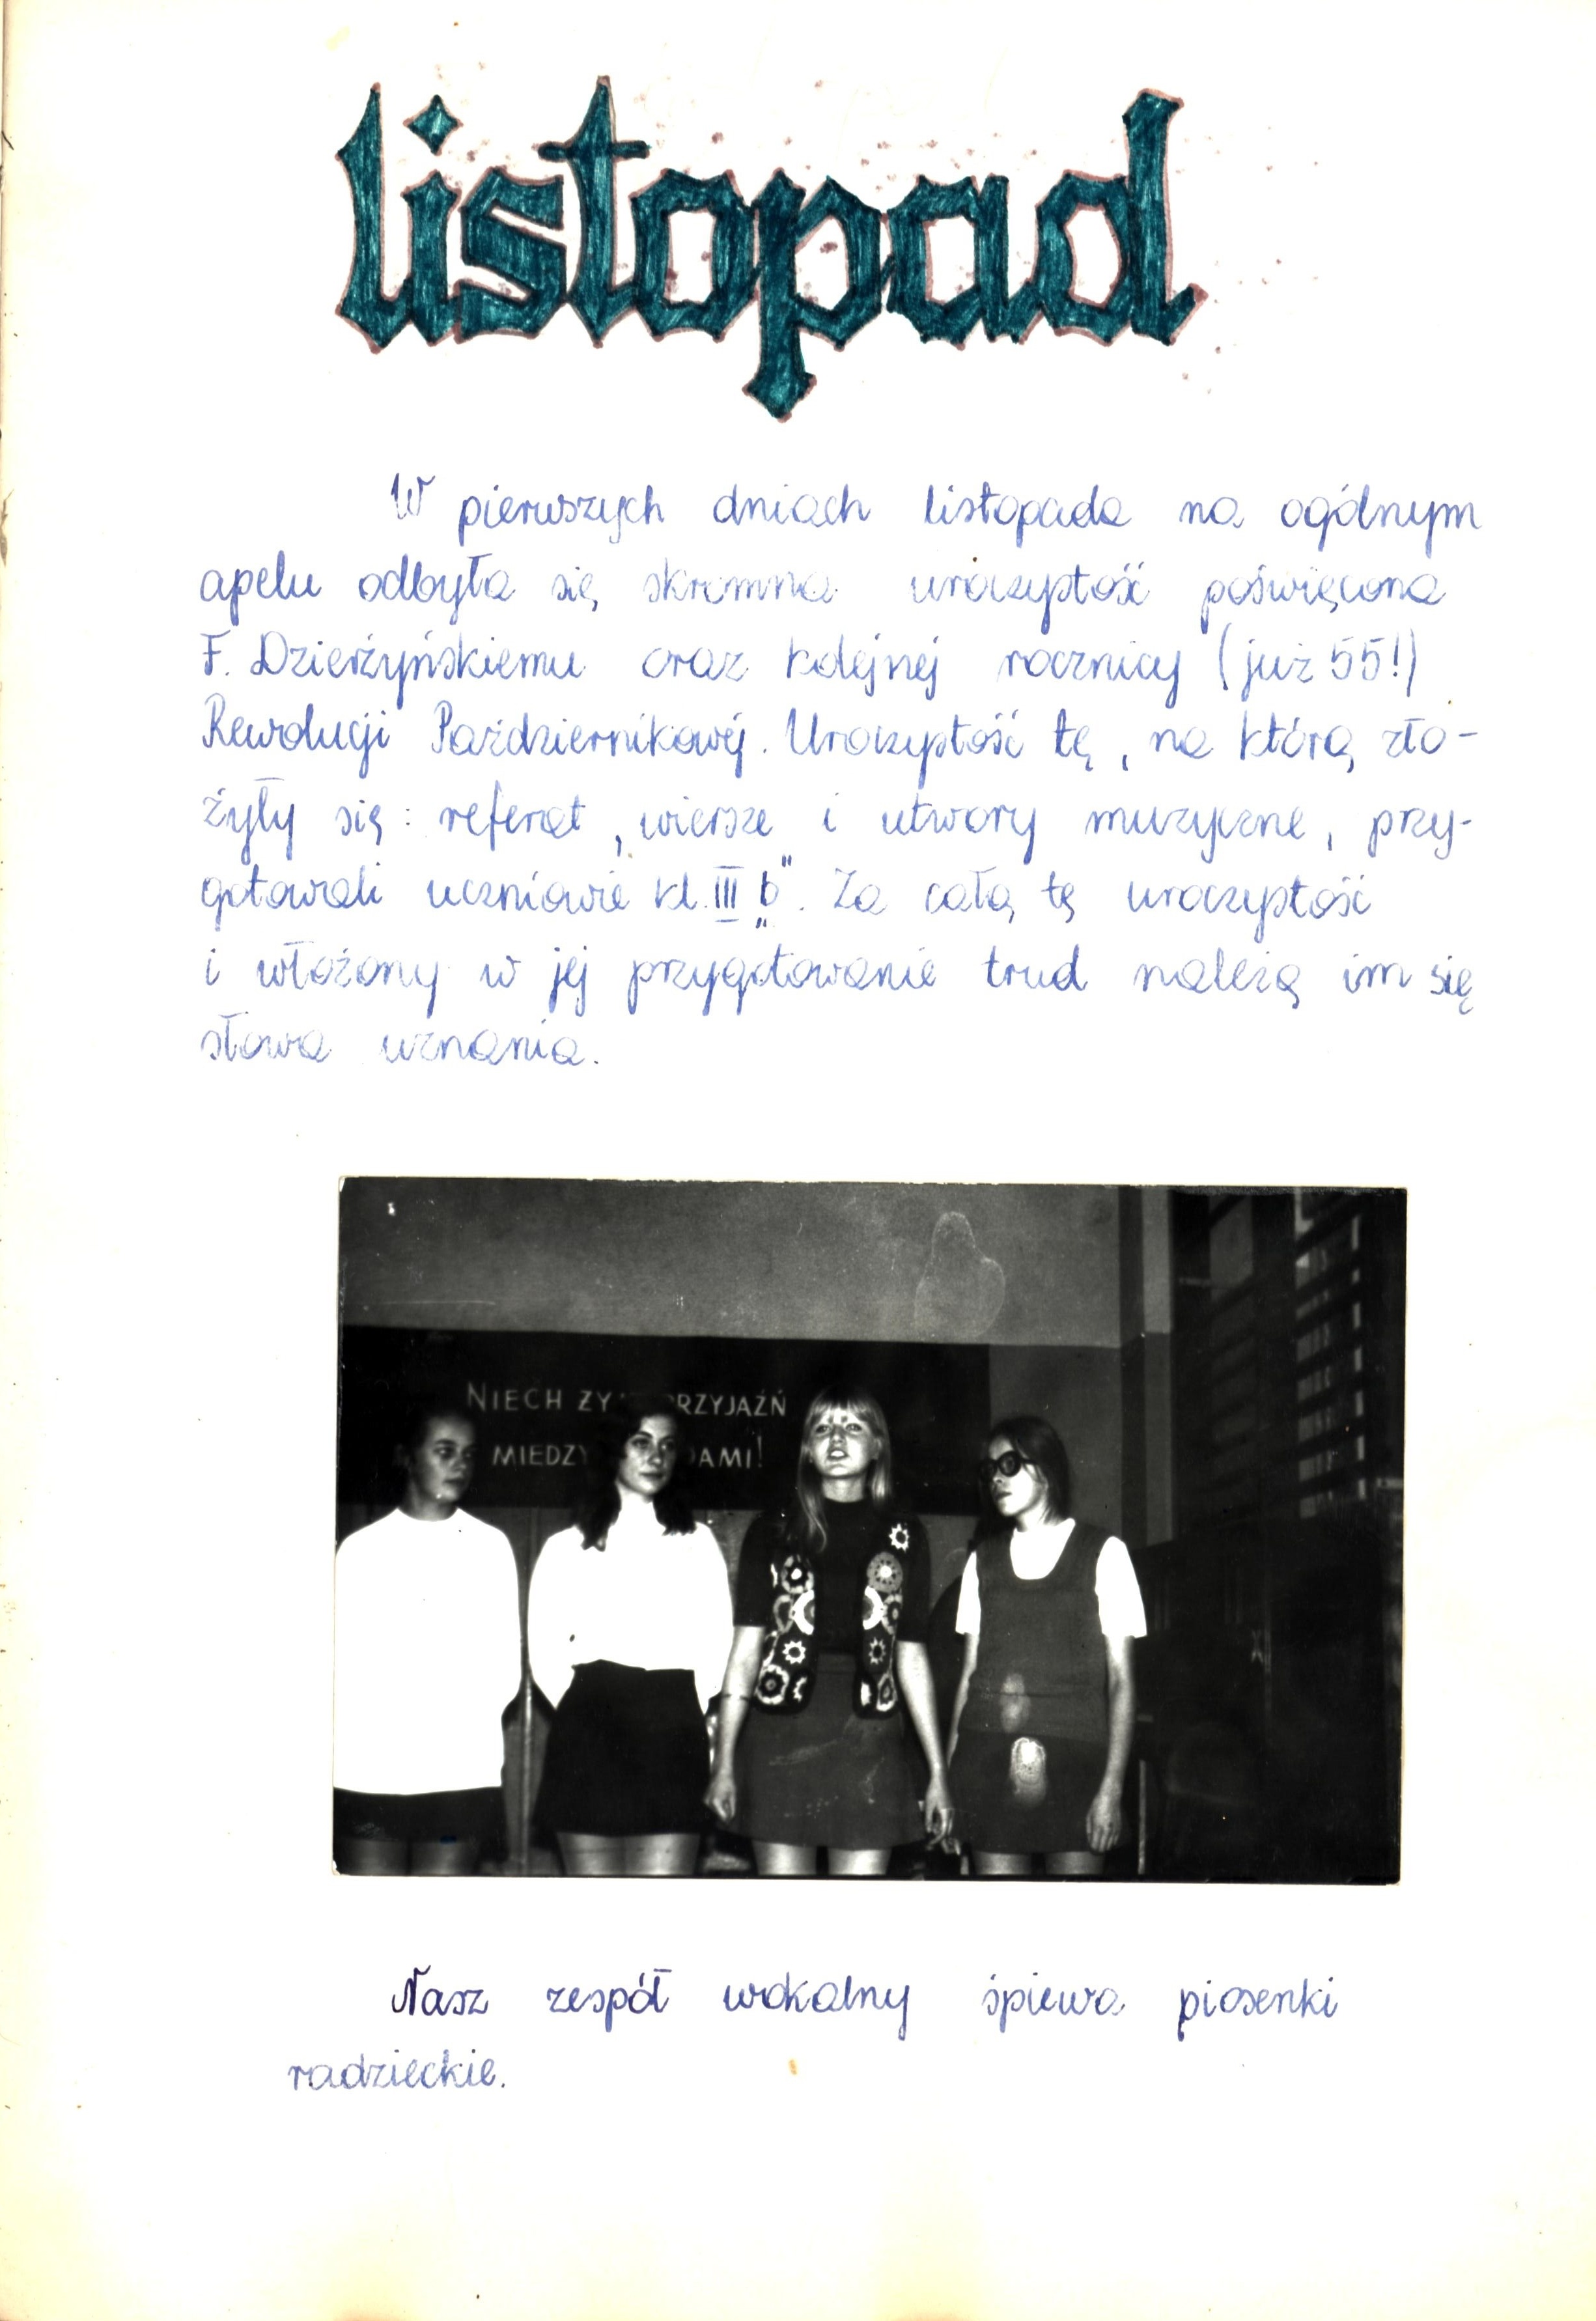 listopad
W pierwszych dniach listopada na ogólnym
apelu odbyła się skromna uroczystość poświęcona
F. Dzierżyńskiemu oraz kolejnej rocznicy (już 55!)
Rewolucji Październikowej. Uroczystość tę, na którą zło-
żyły się: referat, wiersze i utwory muzyczne, przy-
gotowali uczniowie kl. III „b". Za całą tę uroczystość
i włożony w jej przygotowanie trud należą im się
słowa uznania.
NIECH ŻY PRZYJAŹŃ
MIĘDZY DAMI!
Nasz zespół wokalny śpiewa piosenki
radzieckie.